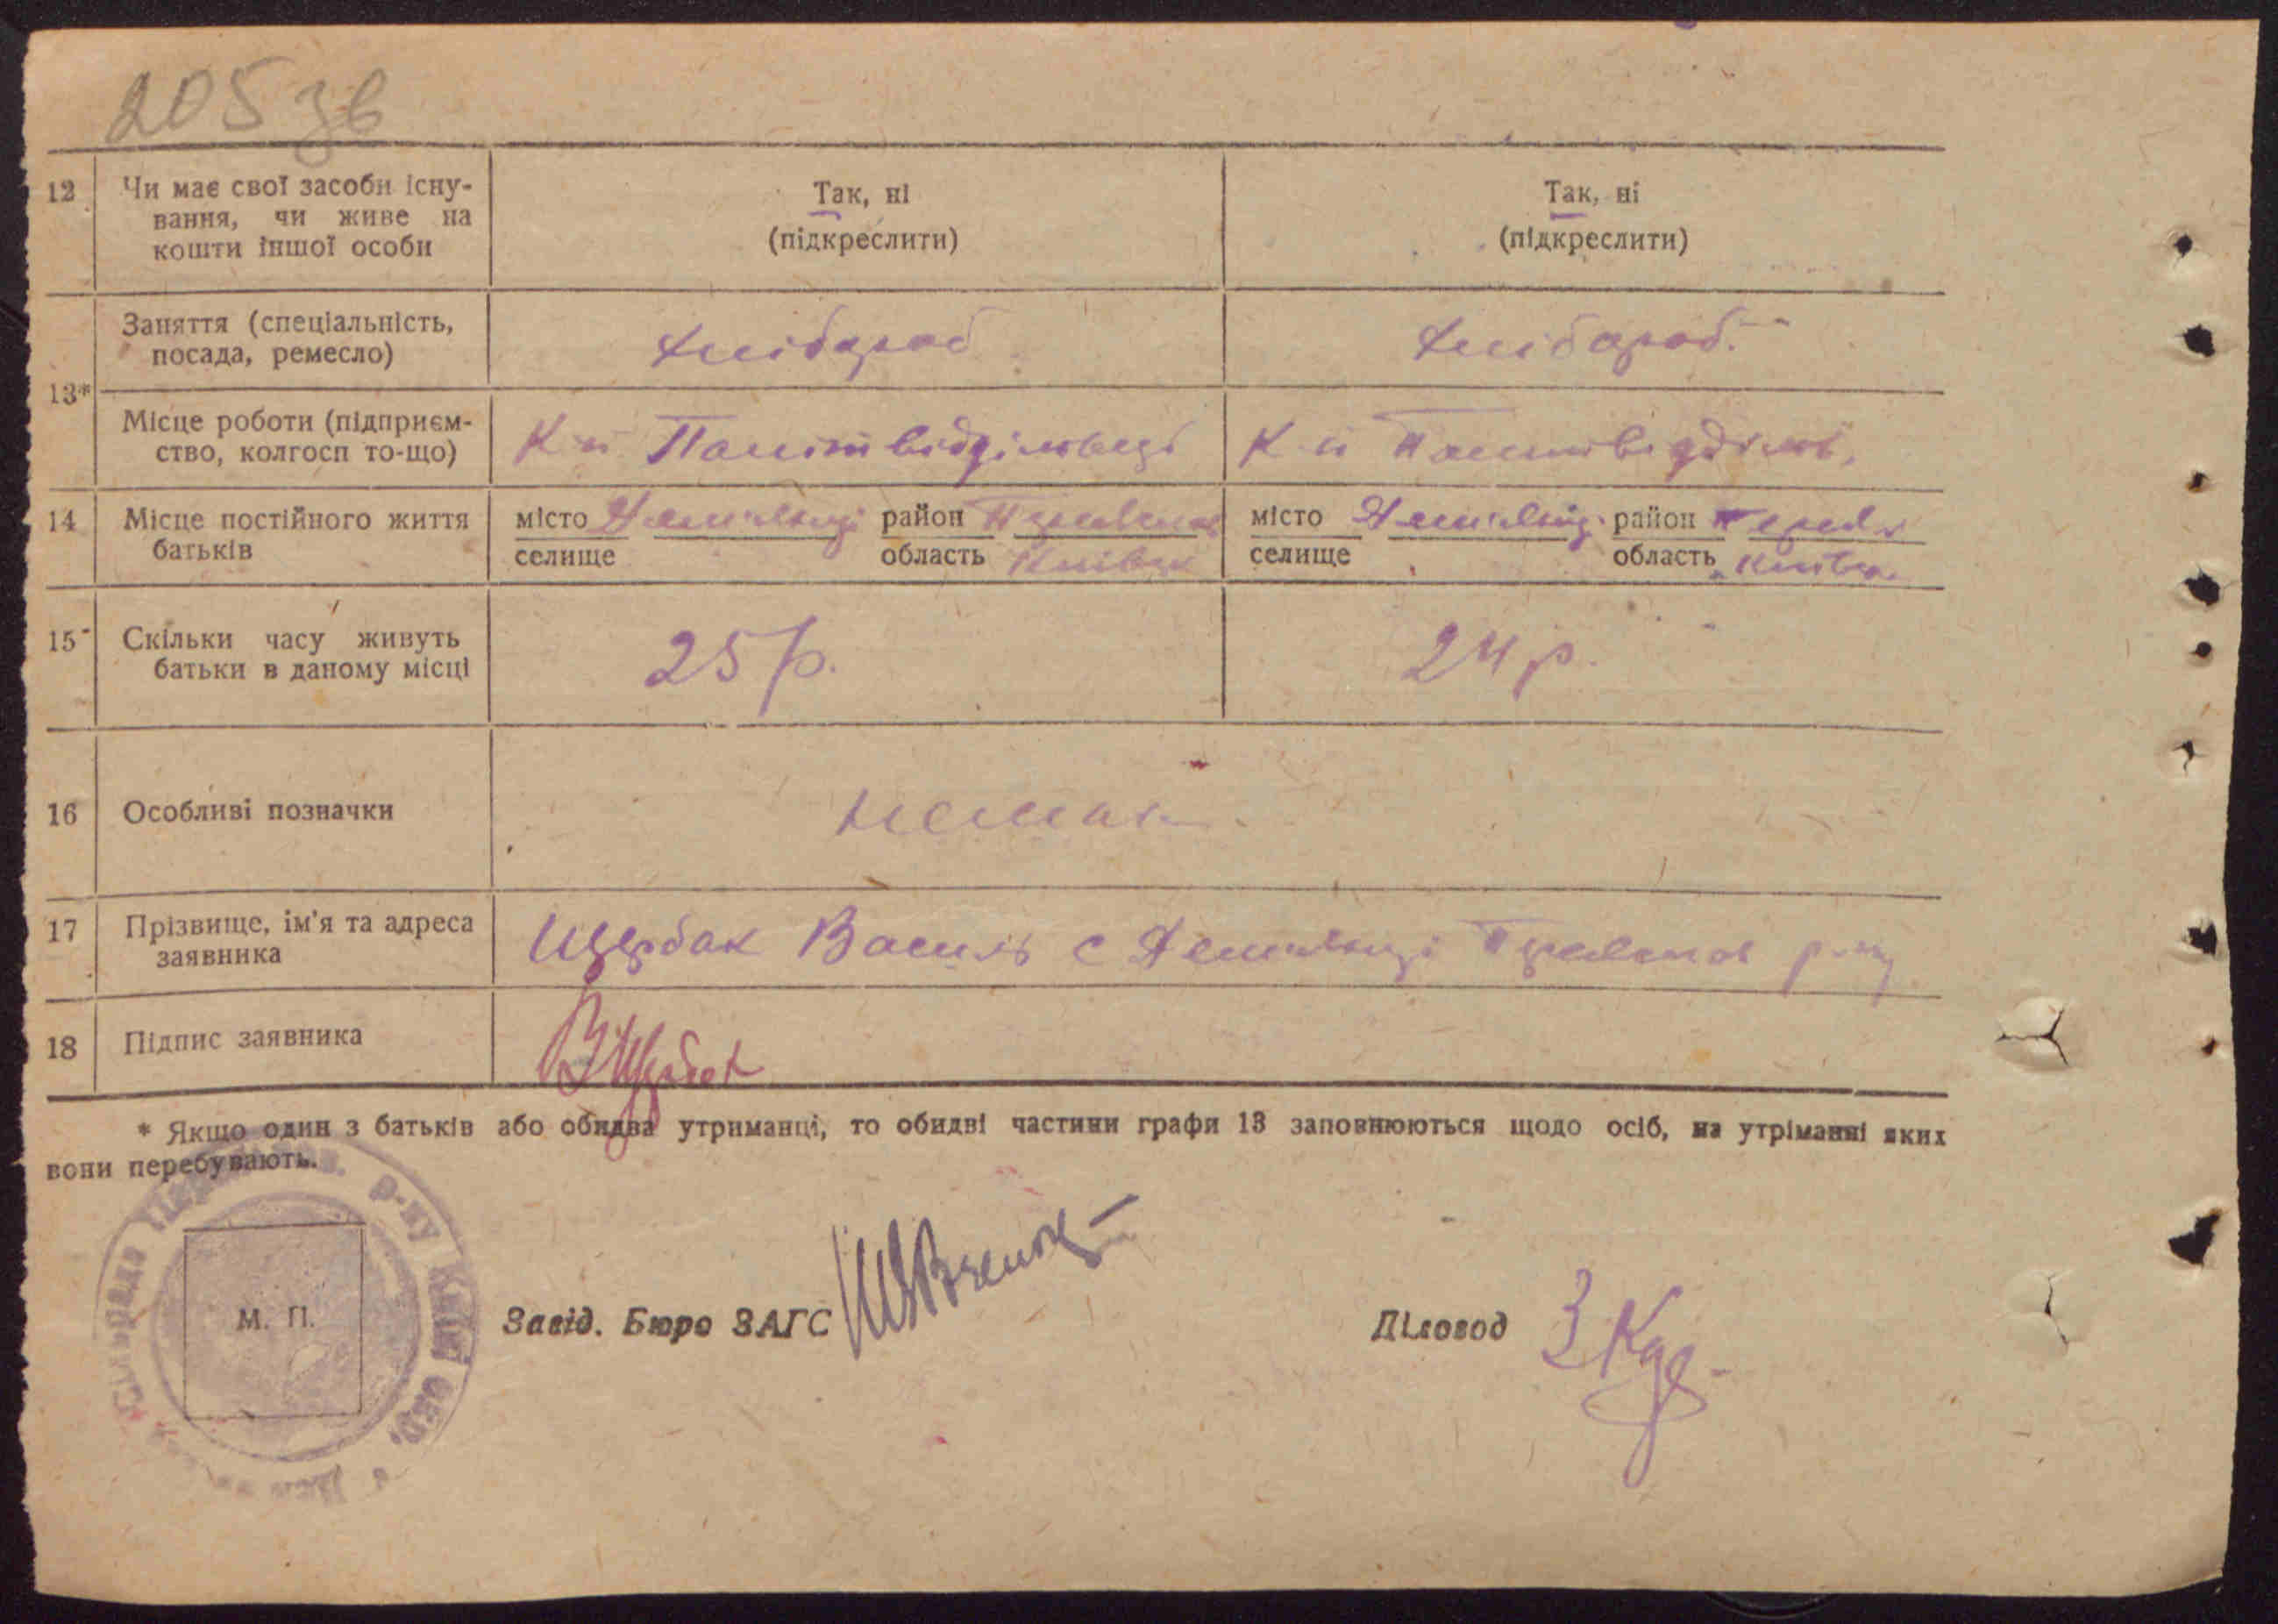 205 зв
12 Чи має свої засоби існу-
вання, чи живе на
кошти іншої особи
Так, ні
(підкреслити)
Так, ні
(підкреслити)
13*
Заняття (спеціальність,
посада, ремесло)
хлібороб
хлібороб.
Місце роботи (підприєм-
ство, колгосп то-що)
К-п Політвідділовець
К-п Політвідділов.
14 Місце постійного життя
батьків
місто район
селище область Київськ
місто район
селище область Київськ.
15 Скільки часу живуть
батьки в даному місці
25 р.
24 р.
16 Особливі позначки
немає
17 Прізвище, ім'я та адреса
заявника
Щербак Василь с р-ну
18 Підпис заявника
В Щербак
* Якщо один з батьків або обидва утриманці, то обидві частини графи 13 заповнюються щодо осіб, на утріманні яких
вони перебувають.
р-ну Київ. обл.
М. П.
Завід. Бюро ЗАГС
Діловод